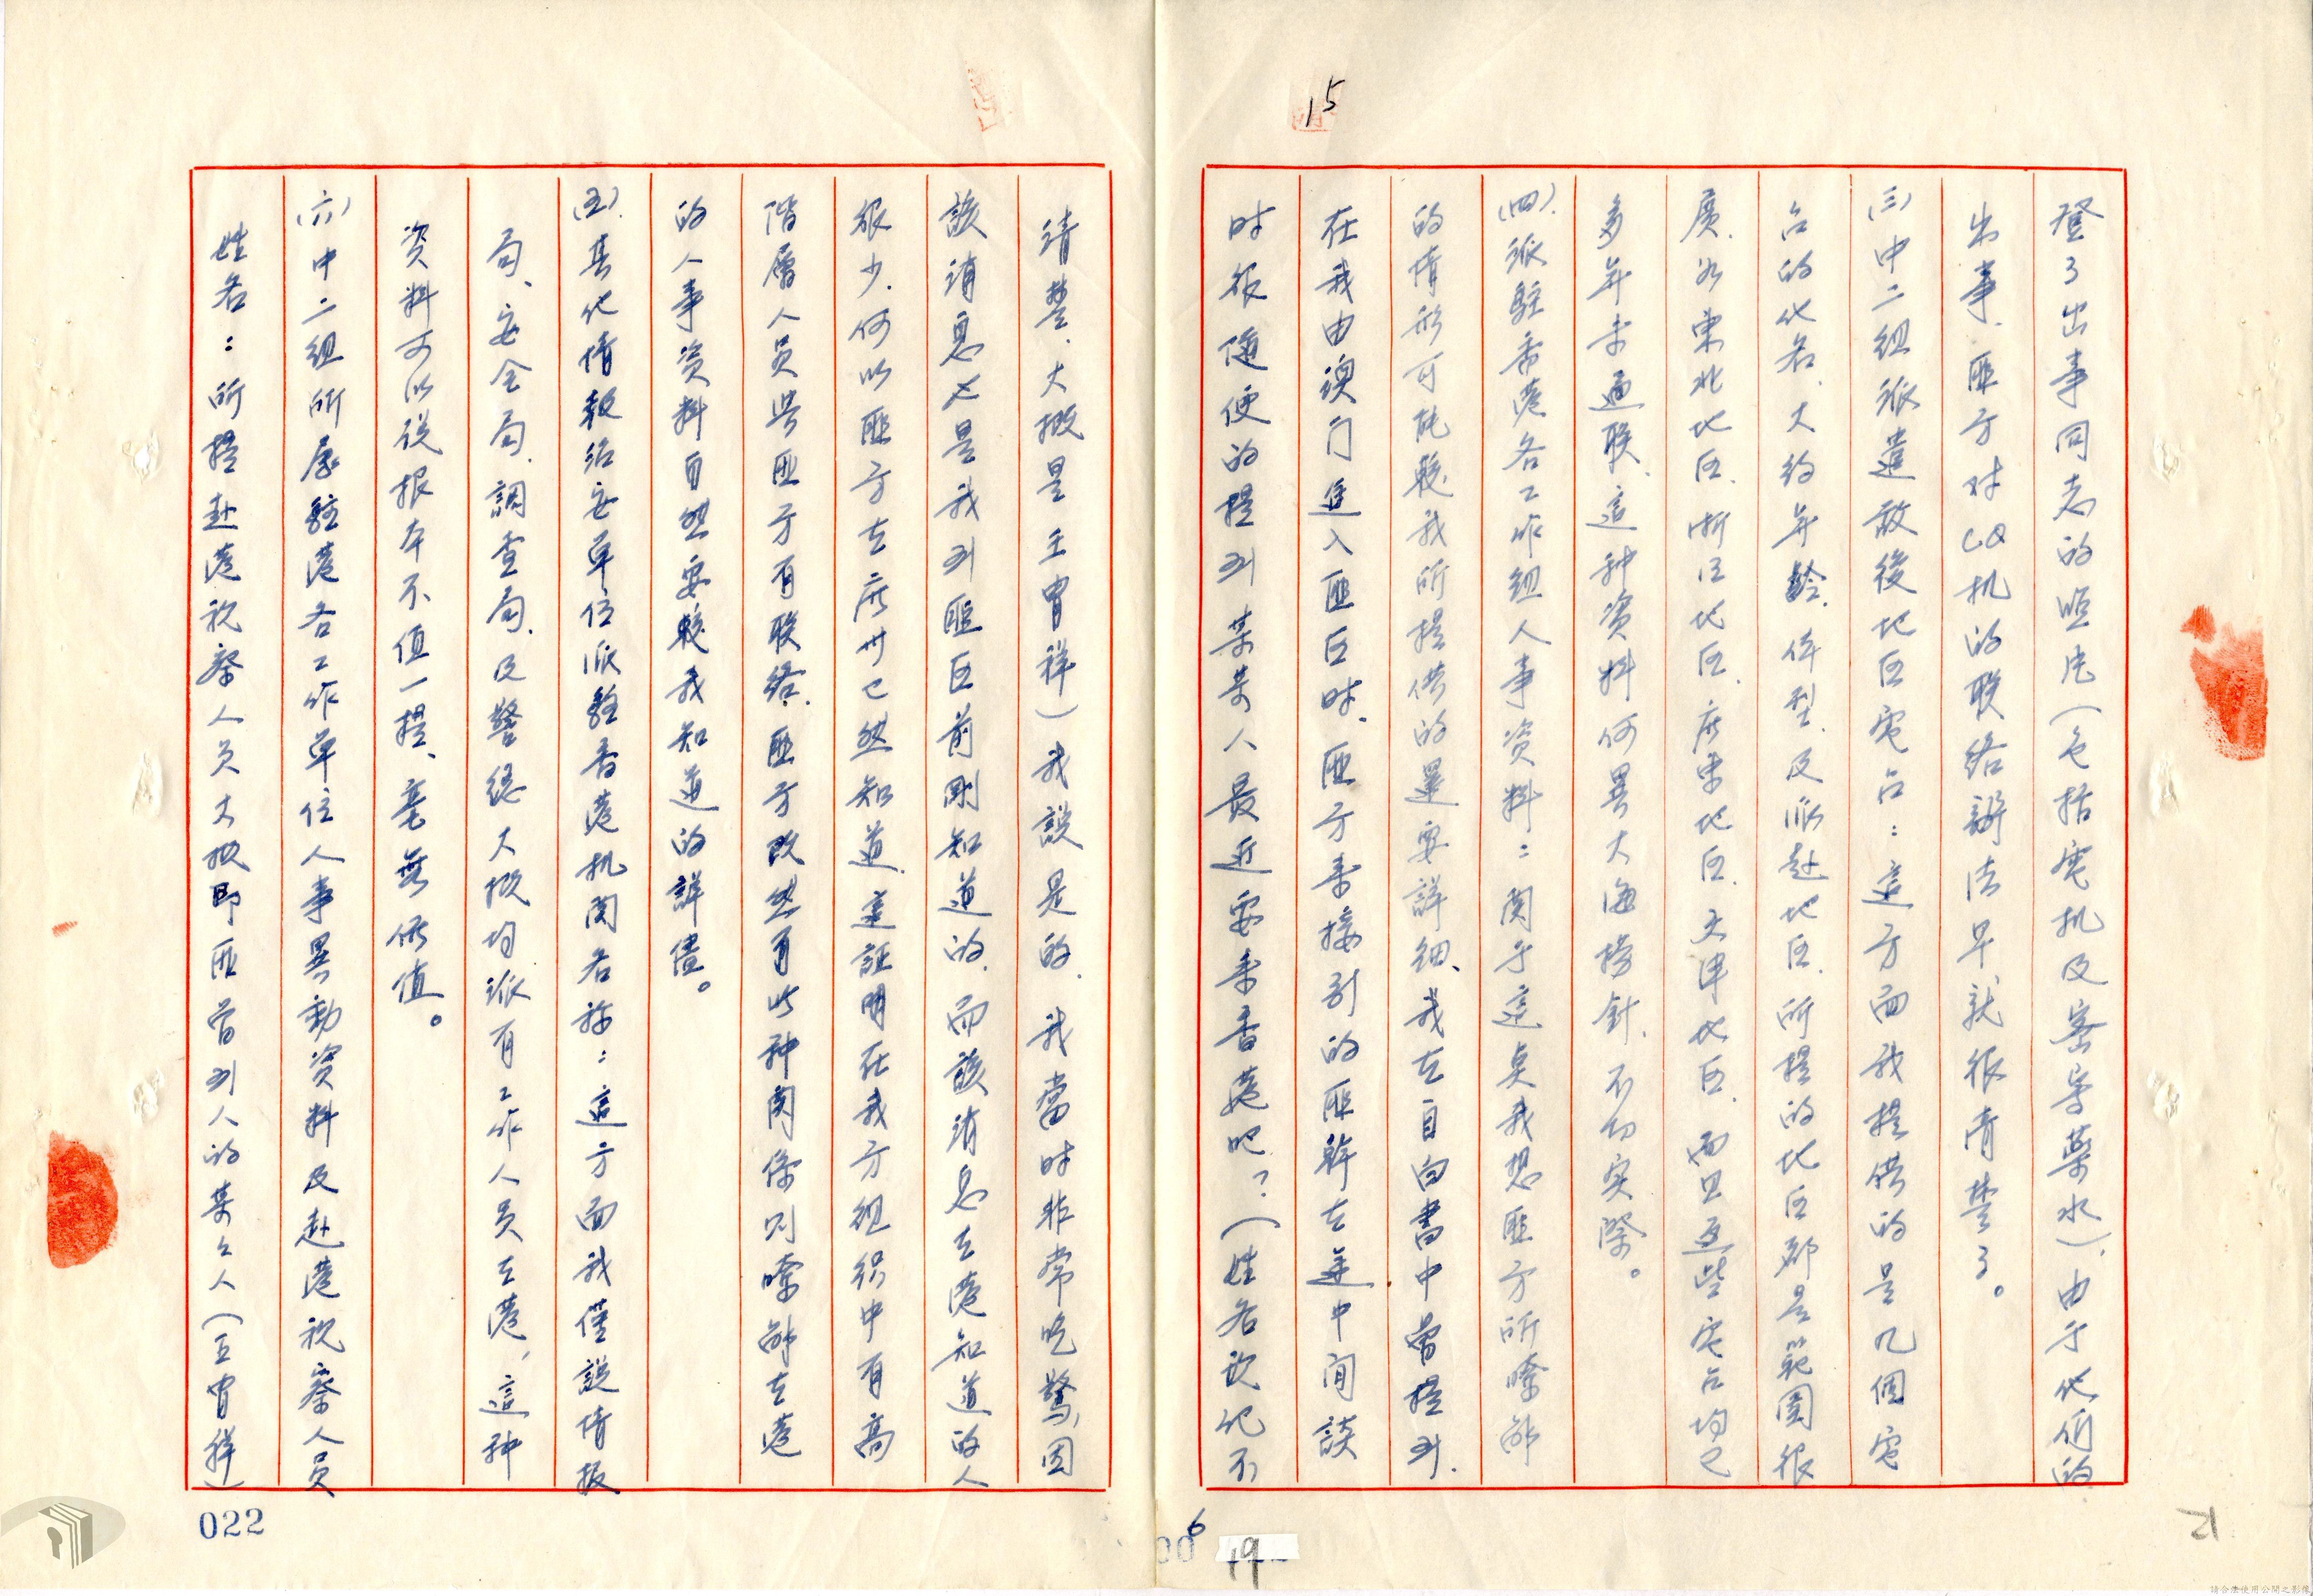 15
登了出事同志的照片（包括電机及密寫藥水），由于他们的
出事，匪方对CQ机的联络辦法早就很清楚了。
(三)中二组派遣敌後地区電台：這方面我提供的是几個電
台的化名，大约年齡，体型，及派赴地区，所提的地区都是範圍很
廣，如東北地区，浙江地区，広東地区，天津地区，而且這些電台均已
多年未通联，這种資料何異大海撈針，不切实際。
(四)派駐香港各工作组人事資料：関于這点我想匪方所暸解
的情形可能較我所提供的還要詳細，我在自白書中曾提到，
在我由澳门進入匪区时，匪方來接引的匪幹在途中间談
时很随便的提到某某人最近要來香港吧？（姓名記不
清楚，大概是王曾祥）我說是的，我當时非常吃驚，因
該消息也是我到匪区前剛知道的，而該消息在港知道的人
很少，何以匪方在広州已然知道，這証明在我方组织中有高
階層人員與匪方有联络，匪方既然有此种関係则暸解在港
的人事資料自然要較我知道的詳儘。
(五)其他情報治安单位派駐香港机関名称：這方面我僅說情报
局、安全局、調查局、及警總大概均派有工作人员在港，這种
資料可以说根本不值一提，毫無价值。
(六)中二组所属駐港各工作单位人事異動資料及赴港視察人员
姓名：所提赴港視察人员大概即匪曾到人的某么人（王曾祥）
022
6
00
19
21
請合法使用公開之影像